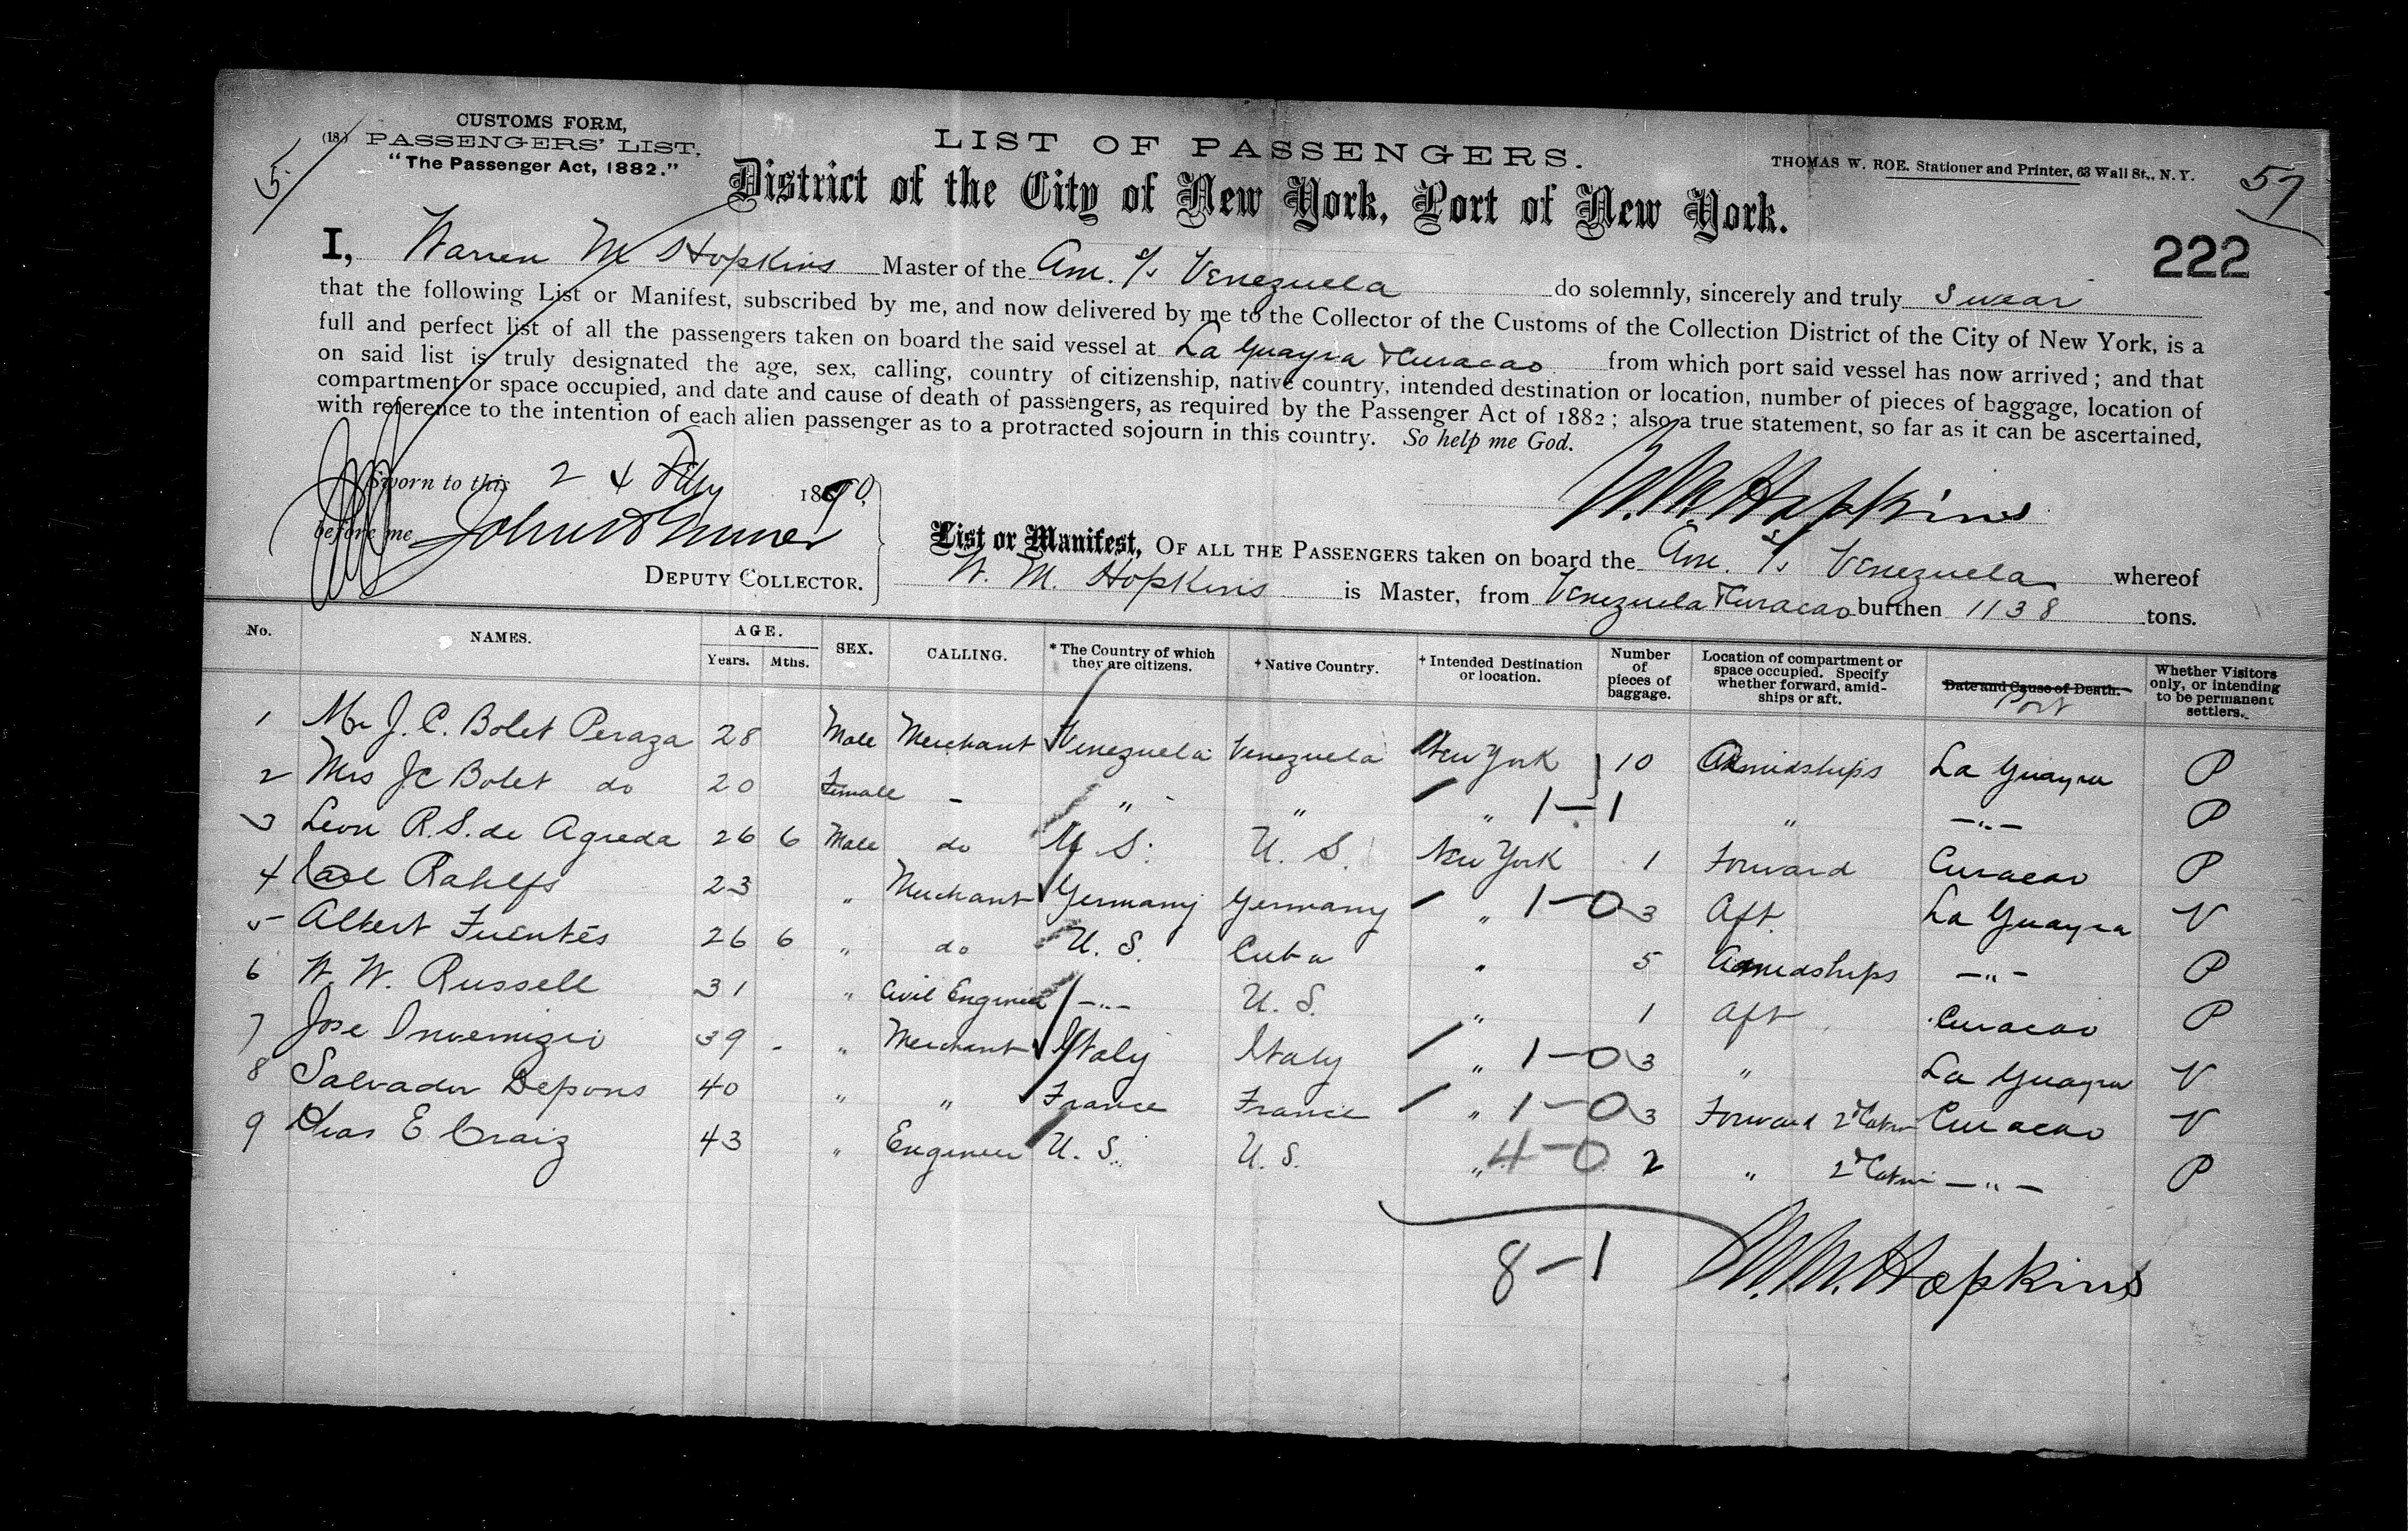 CUSTOMS FORM,
(18.) PASSENGERS' LIST,
"The Passenger Act, 1882."
5
LIST OF PASSENGERS.
THOMAS W. ROE. Stationer and Printer, 63 Wall St., N. Y.
57
District of the City of New York, Port of New York.
222
I, Warren M Hopkins Master of the Am. s/s Venezuela do solemnly, sincerely and truly swear
that the following List or Manifest, subscribed by me, and now delivered by me to the Collector of the Customs of the Collection District of the City of New York, is a
full and perfect list of all the passengers taken on board the said vessel at La Guayra & Curacao from which port said vessel has now arrived; and that
on said list is truly designated the age, sex, calling, country of citizenship, native country, intended destination or location, number of pieces of baggage, location of
compartment or space occupied, and date and cause of death of passengers, as required by the Passenger Act of 1882; also a true statement, so far as it can be ascertained,
with reference to the intention of each alien passenger as to a protracted sojourn in this country. So help me God.
Sworn to this 24 Feby 1890
W. M. Hopkins
before me
DEPUTY COLLECTOR.
List or Manifest, OF ALL THE PASSENGERS taken on board the Am. s/s Venezuela whereof
W. M. Hopkins is Master, from Venezuela & Curacao burthen 1138 tons.
No. NAMES. AGE. Years. Mths. SEX. CALLING. * The Country of which they are citizens. + Native Country. + Intended Destination or location. Number of pieces of baggage. Location of compartment or space occupied. Specify whether forward, amidships or aft. Date and Cause of Death. Port Whether Visitors only, or intending to be permanent settlers.
1 Mr J. C. Bolet Peraza 28 Male Merchant Venezuela Venezuela New York 10 Amidships La Guayra P
2 Mrs J C Bolet do 20 Female - " " " 1-1 " -"- P
3 Leon R. S. de Agreda 26 6 Male do U. S. U. S. New York 1 Forward Curacao P
4 Carl Rahlfs 23 " Merchant Germany Germany " 1-0 3 Aft. La Guayra V
5 Albert Fuentes 26 6 " do U. S. Cuba " 5 Amidships -"- P
6 W. W. Russell 31 " Civil Engineer -"- U. S. " 1 Aft Curacao P
7 Jose Invernizio 39 - " Merchant Italy Italy " 1-0 3 " La Guayra V
8 Salvador Depons 40 " " France France " 1-0 3 Forward 2d Cabin Curacao V
9 Chas E. Craig 43 " Engineer U. S. U. S. " 4-0 2 " 2d Cabin -"- P
8-1
W. M. Hopkins